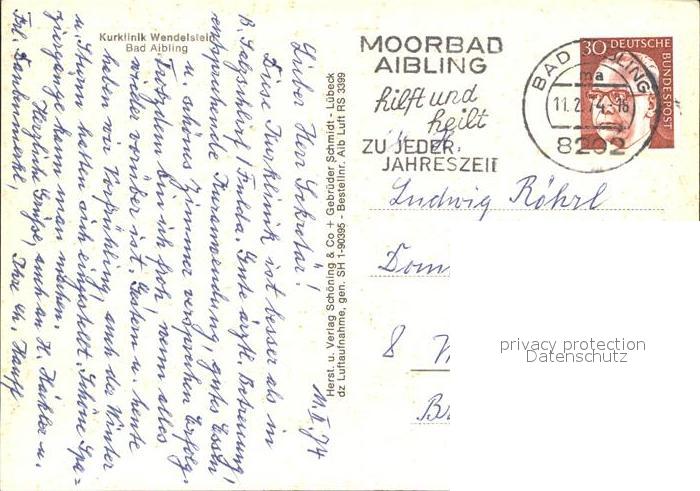 Kurklinik Wendelstein
Bad Aibling
MOORBAD
AIBLING
hilft und
heilt
ZU JEDER
JAHRESZEIT
BAD AIBLING
ma
11.2.74-16
8202
30 DEUTSCHE
BUNDESPOST
11.II.74
Lieber Herr Sekretär!
Diese Kurklinik ist besser als in
B. Salzschlirf/Fulda. Gute ärztl. Betreuung,
entsprechende Kuranwendung, gutes Essen
u. schönes Zimmer versprechen Erfolg.
Trotzdem bin ich froh, wenn alles
wieder vorüber ist. Gestern u. heute
haben wir Vorfrühling, auch der Winter
u. Sturm hatten sich eingestellt. Schöne Spa=
ziergänge kann man machen.
Herzliche Grüsse, auch an H. Huckler u.
Frl. Ihre Ch. Hauff
Herst. u. Verlag Schöning & Co + Gebrüder Schmidt - Lübeck
dz Luftaufnahme, gen. SH 1-90395 - Bestellnr. Aib Luft RS 3399
Ludwig Röhrl
Dom
8
privacy protection
Datenschutz